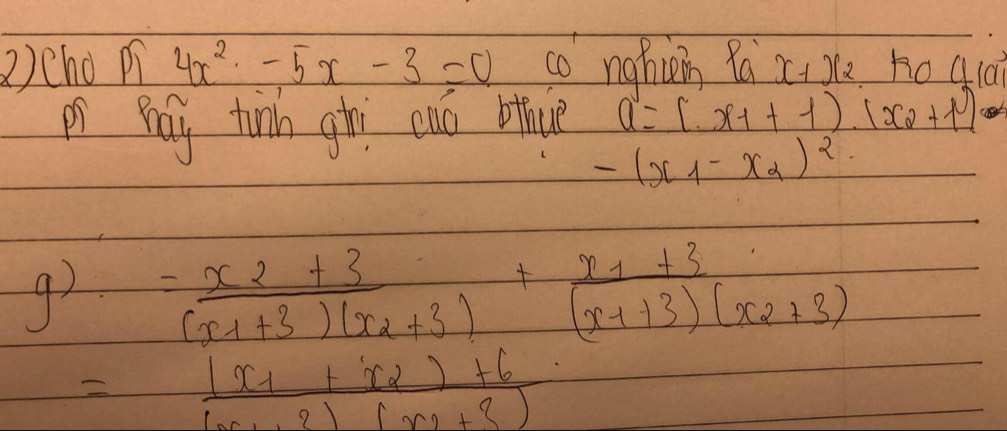 2) Cho pt 4x² - 5x - 3 = 0 có nghiệm là x1 x2 ko giải
pt hãy tính gtrị của bthức a = (x1 + 1).(x2 + 1)
- (x1 - x2)².
g) = x2 + 3 / (x1 + 3)(x2 + 3) + x1 + 3 / (x1 + 3)(x2 + 3)
= (x1 + x2) + 6 / (x1 + 3)(x2 + 3)